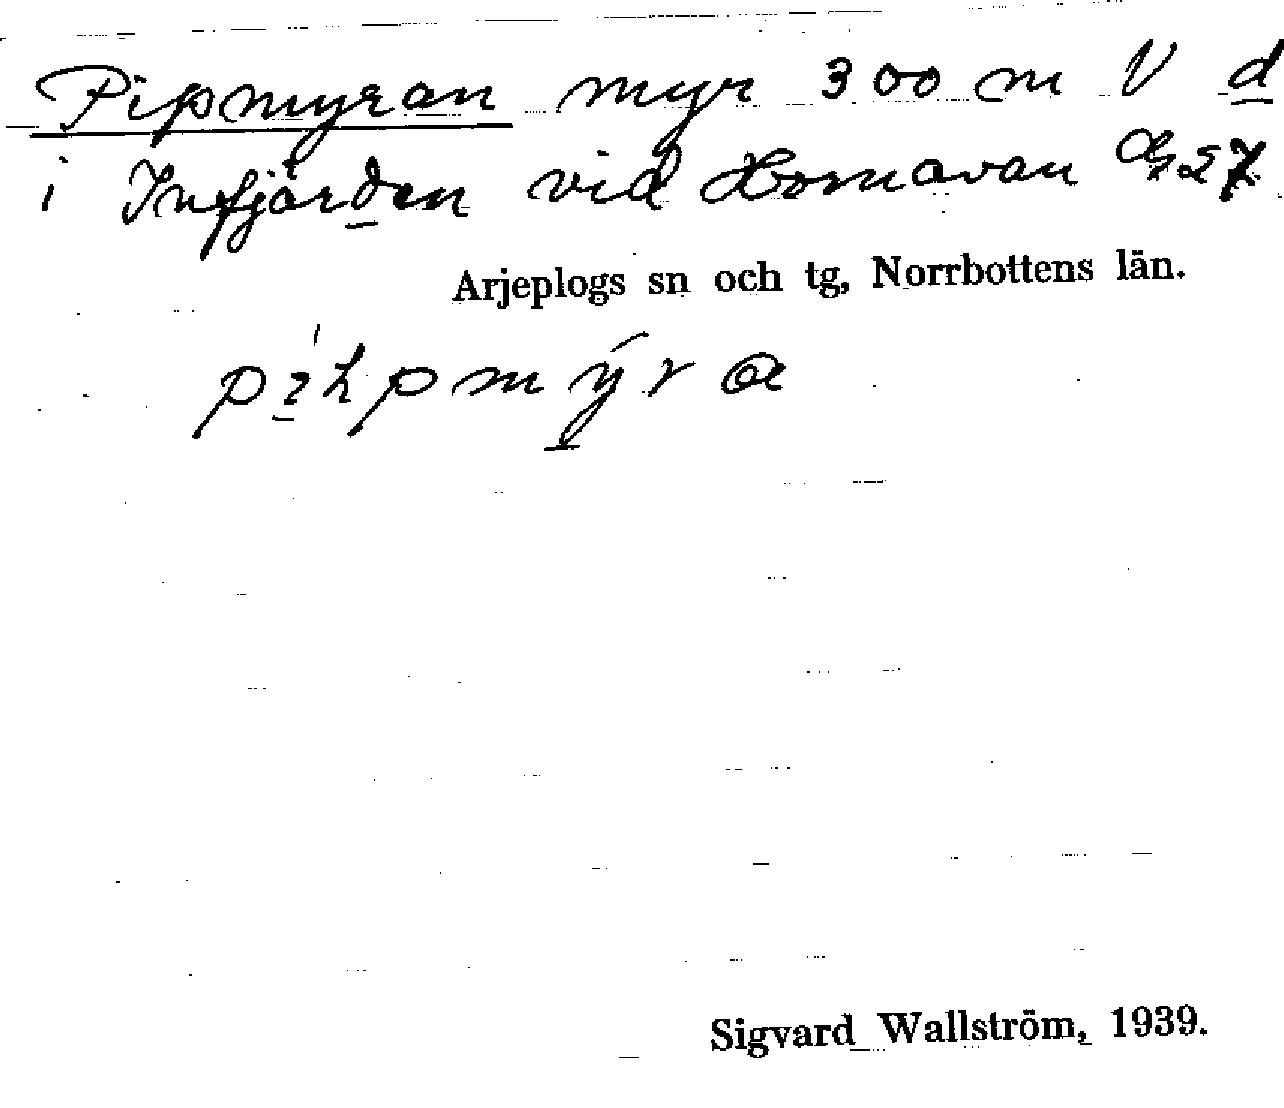 Pipmyran myr 300 m V d
i Infjärden vid Hornavan
Arjeplogs sn och tg, Norrbottens län.
Sigvard Wallström, 1939.